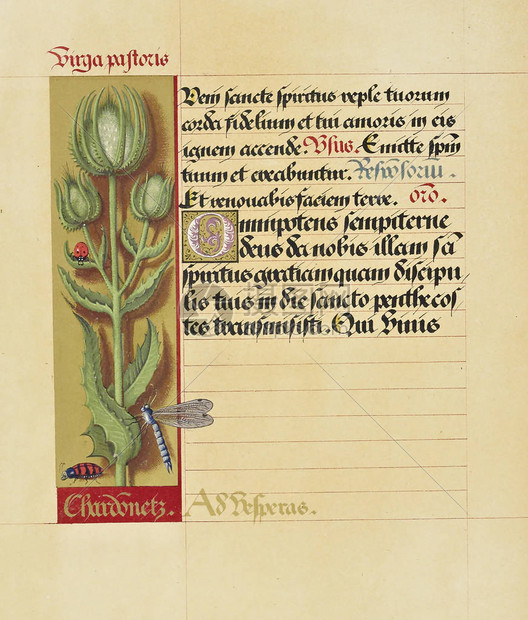 Virga pastoris
Veni sancte spiritus reple tuorum
corda fidelium et tui amoris in eis
ignem accende. Vsus. Emitte spm
tuum et creabuntur. Responsoriu.
Et renouabis faciem terre. oro.
Omnipotens sempiterne
deus da nobis illam sa
spiritus gratiam quam discipu
lis tuis in die sancto penthecos
tes transmisisti. Qui viuis
Chardonetz. Ad vesperas.